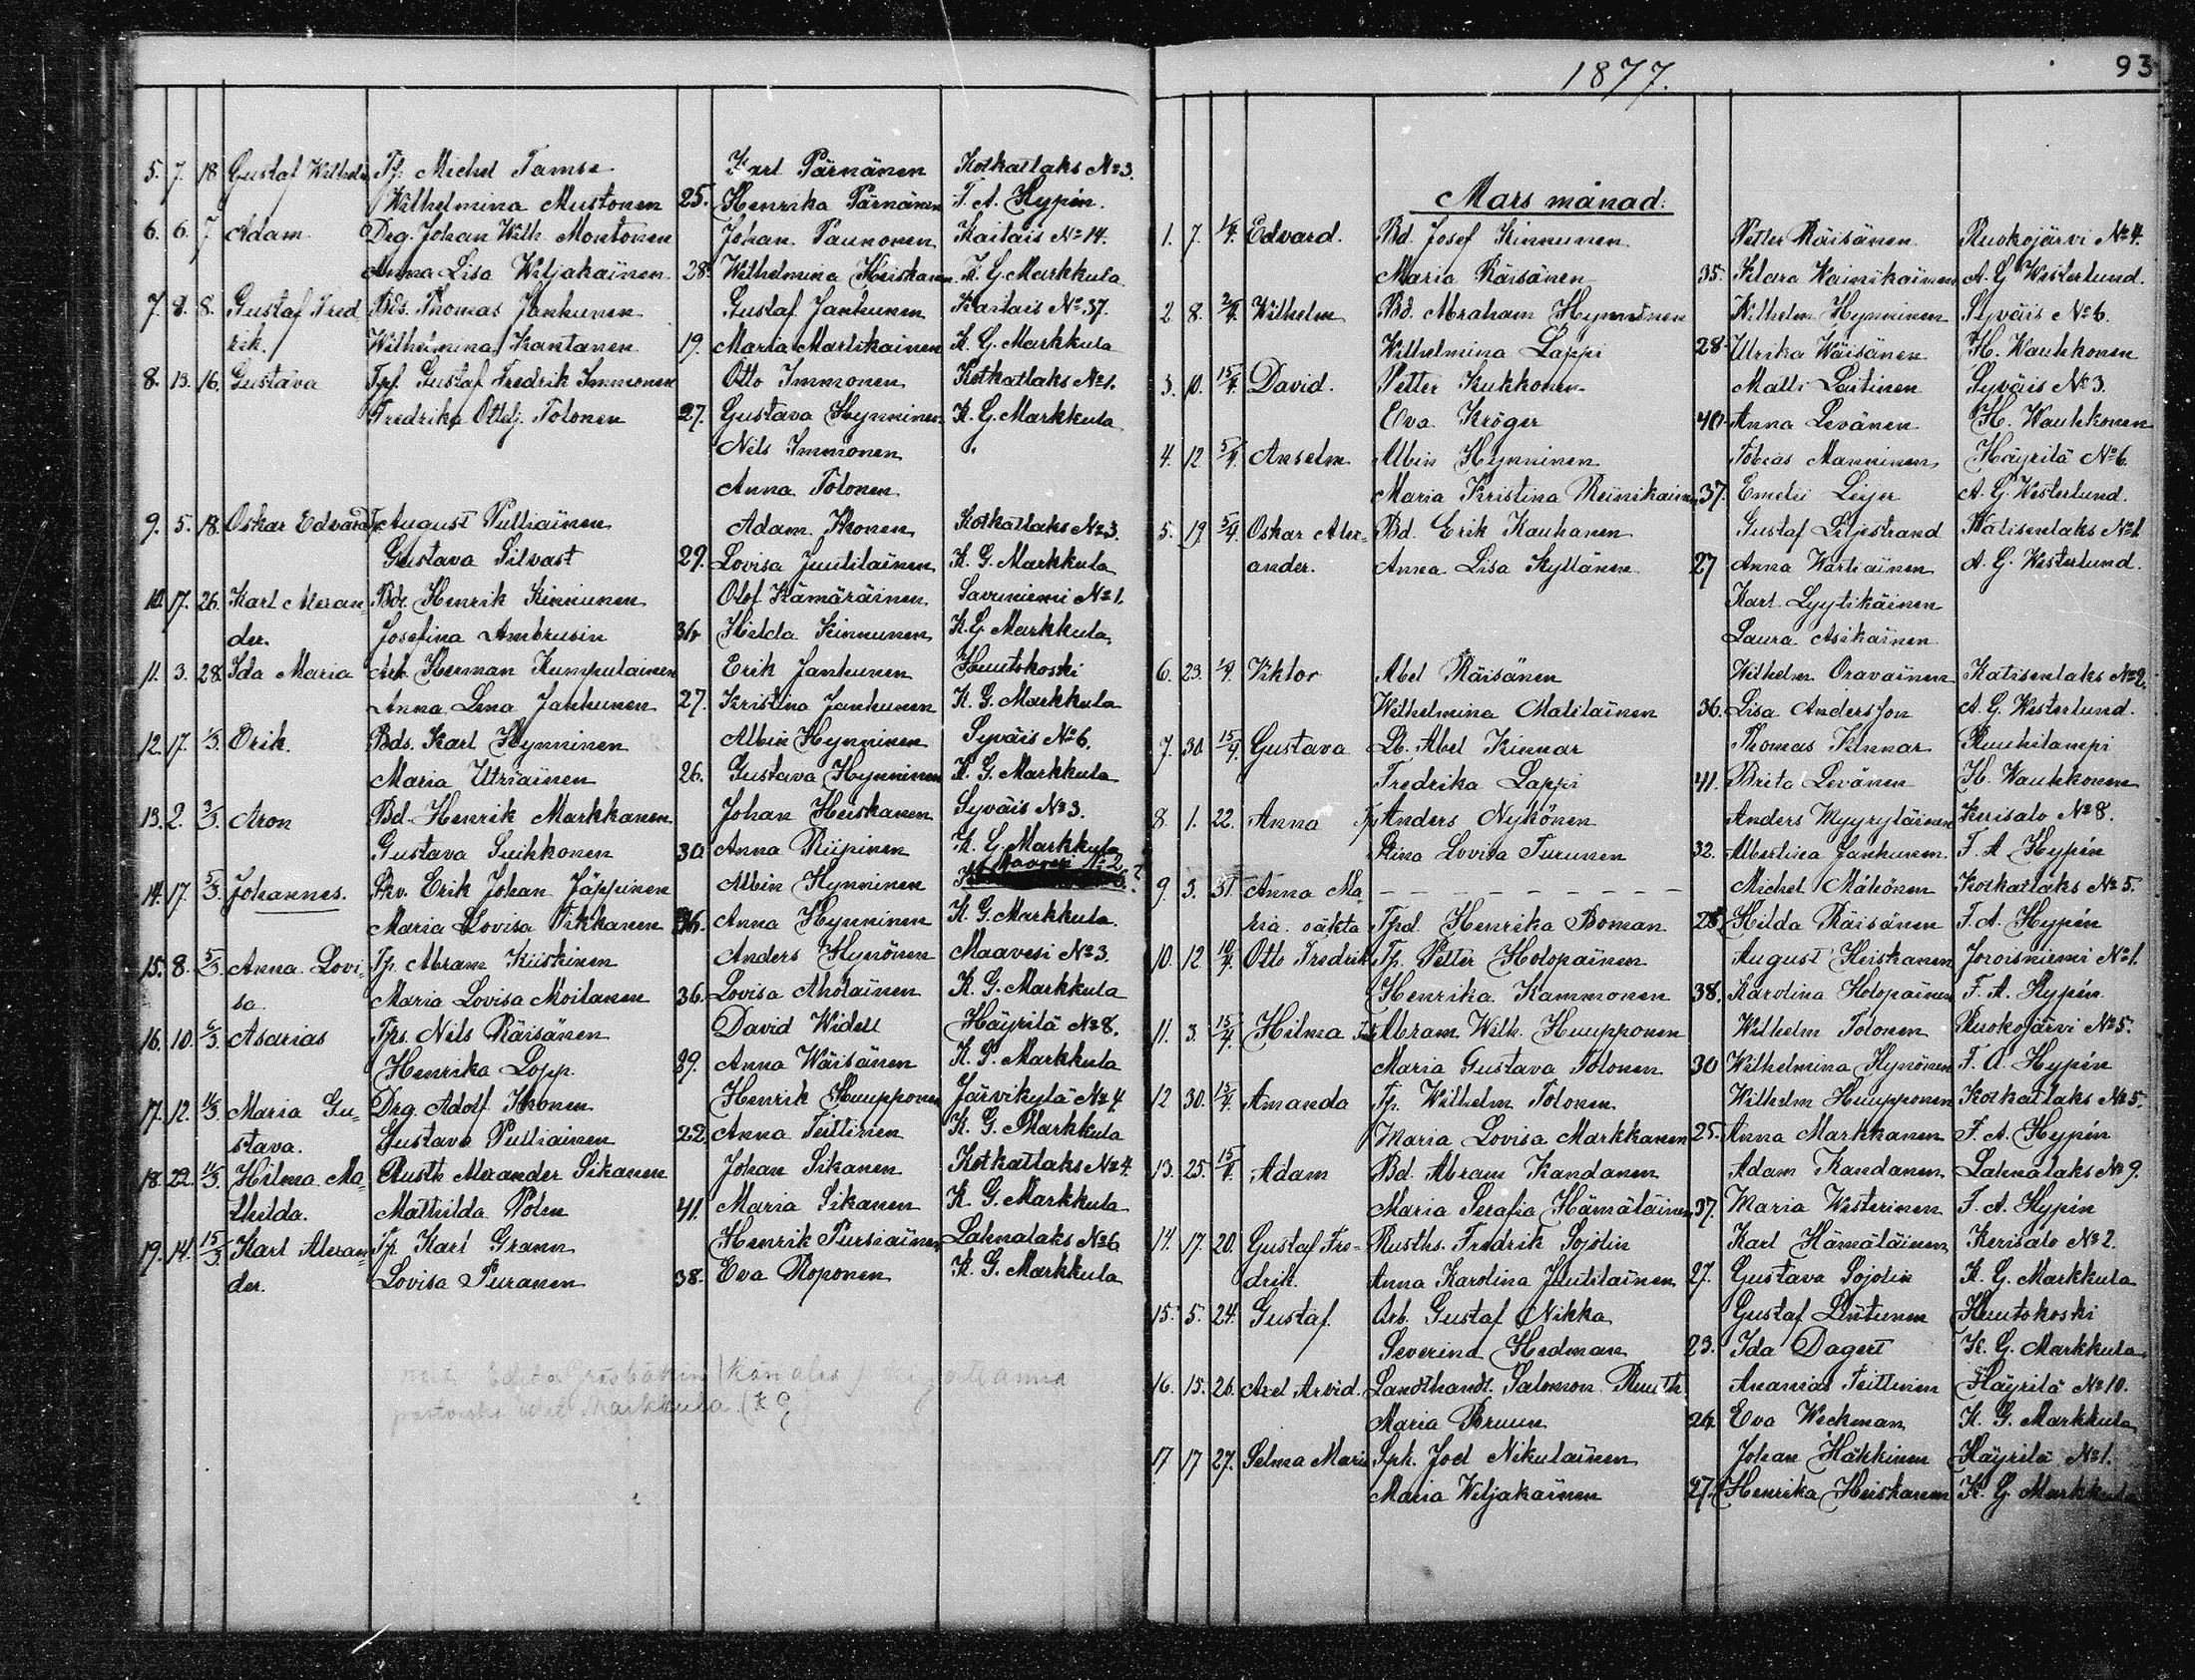 5. 7. 18 Gustaf Wilhelm Tp. Michel Tamse Karl Pärnänen Kotkatlaks No 3.
Wilhelmina Mustonen 25. Henrika Pärnänen F. A. Hypén.
6. 6. 7 Adam Drg. Johan Wilh. Montonen Johan Paunonen Kaitais No 14.
Anna Lisa Wiljakainen 28. Wilhelmina Heiskanen K. G. Markkula
7. 8. 8. Gustaf Fred Bds. Thomas Janhunen Gustaf Janhunen Kaitais No 37.
rik. Wilhelmina Kantanen 19. Maria Martikainen K. G. Markkula
8. 13. 16. Gustava Tpf. Gustaf Fredrik Immonen Otto Immonen Kotkatlaks No 1.
Fredrika Ottilj. Tolonen 27. Gustava Hynninen K. G. Markkula
Nils Immonen
Anna Tolonen
9. 5. 18. Oskar Edvard August Pulliainen Adam Ikonen Kotkatlaks No 3.
Gustava Silvast 29. Lovisa Juutilainen K. G. Markkula
10. 17. 26. Karl Alexan Bds. Henrik Kinnunen Olof Kämäräinen Savuniemi No 1.
der. Josefina Ambrusin 36 Hilda Kinnunen K. G. Markkula
11. 3. 28. Ida Maria Arb. Herman Kumpulainen Erik Janhunen Huutokoski
Anna Lena Janhunen 27. Kristina Janhunen K. G. Markkula
12. 17. 1/3. Erik. Bds. Karl Hynninen Albin Hynninen Syväis No 6.
Maria Utriainen 26. Gustava Hynninen K. G. Markkula
13. 2. 3/3. Aron Bd. Henrik Markkanen Johan Heiskanen Syväis No 3.
Gustava Suihkonen 30 Anna Riipinen K. G. Markkula
Maavesi No 2
14. 17. 5/3. Johannes. Erik Johan Jäppinen Albin Hynninen
Maria Lovisa Tikkanen 36. Anna Hynninen K. G. Markkula.
15. 8. 5/3. Anna Lovi- Tp. Abram Kiiskinen Anders Hynönen Maavesi No 3.
sa Maria Lovisa Moilanen 36. Lovisa Aholainen K. G. Markkula
16. 10. 6/3. Asarias Tps. Nils Räisänen David Widell Häyrilä No 8.
Henrika Lopp. 29. Anna Wäisänen K. G. Markkula
17. 12. 11/3. Maria Gu- Drg. Adolf Ikonen Henrik Huupponen Järvikylä No 4
stava. Gustava Pulliainen 22. Anna Teittinen K. G. Markkula
18. 22. 11/3. Hilma Ma- Rusth. Alexander Sikanen Johan Sikanen Kotkatlaks No 4.
thilda. Mathilda Polen 41. Maria Sikanen K. G. Markkula
19. 14. 15/3. Karl Alexan- Tp Karl Grann Henrik Pursiainen Lahnalaks No 6
der. Lovisa Puranen 38. Eva Roponen K. G. Markkula
Markkula
1877.
93
Mars månad:
1. 7. 1/4. Edvard. Bd. Josef Kinnunen Petter Räisänen Ruokojärvi No 4.
Maria Räisänen 35. Klara Wainikainen A. G. Westerlund.
2 8. 2/4. Wilhelm Bd. Abraham Hynninen Wilhelm Hynninen Syväis No 6.
Wilhelmina Lappi 28. Ulrika Wäisänen H. Wauhkonen
3. 10. 15/4. David. Petter Kukkonen Matts Laitinen Syväis No 3.
Eva Kröger 40. Anna Levänen H. Wauhkonen
4. 12 5/4. Anselm Albin Hynninen Tobias Manninen Häyrilä No 6.
Maria Kristina Reinikainen 37. Emelii Leijer A. G. Westerlund.
5. 19 5/4. Oskar Alex- Bd. Erik Kauhanen Gustaf Liljestrand Katisenlaks No 1.
ander. Anna Lisa Kyllänen 27 Anna Wartiainen A. G. Westerlund.
Karl Lyytikäinen
Laura Asikainen
6. 23. 1/4. Viktor Abel Räisänen Wilhelm Oravainen Katisenlaks No 2.
Wilhelmina Matilainen 36. Lisa Andersson A. G. Westerlund.
7. 30. 15/4. Gustava Lb. Abel Kinnar Thomas Kinnar Ruuhilampi
Fredrika Lappi 41. Brita Levänen H. Wauhkonen
8 1. 22. Anna Tp Anders Nykönen Anders Myyryläinen Kerisalo No 8.
Stina Lovisa Turunen 32. Albertina Janhunen. F. A. Hypén
9. 3. 31. Anna Ma- Michel Mähönen Kotkatlaks No 5.
ria. oäkta Tpd. Henrika Boman 28. Hilda Räisänen F. A. Hypén
10. 12 10/4. Otto Fredrik Tp. Petter Holopainen August Heiskanen Joroisniemi No 1.
Henrika Kammonen 38. Karolina Holopainen F. A. Hypén
11. 3. 15/4. Hilma Abram Wilh. Huupponen Wilhelm Tolonen Ruokojärvi No 5.
Maria Gustava Tolonen 30 Wilhelmina Hynönen F. A. Hypén
12 30. 15/4. Amanda Tp. Wilhelm Tolonen Wilhelm Huupponen Kotkatlaks No 5.
Maria Lovisa Markkanen 25. Anna Markkanen F. A. Hypén
13. 25. 15/4. Adam Bd. Abram Kandanen Adam Kandanen Lahnalaks No 9.
Maria Serafia Hämäläinen 37. Maria Westerinen F. A. Hypén
14. 17. 20. Gustaf Fre- Rusths. Fredrik Sojolin Karl Hämäläinen Kerisalo No 2.
drik. Anna Karolina Juutilainen 27. Gustava Sojolin K. G. Markkula
15. 5. 24. Gustaf Arb. Gustaf Nikka Gustaf Lintunen Huutokoski
Severina Hedman 23. Ida Dagert K. G. Markkula
16. 15. 26. Axel Arvid. Landthandl. Salomon Ruuth Ananias Teittinen Häyrilä No 10.
Maria Bruun 26. Eva Weckman K. G. Markkula
17 17 27. Selma Maria Sph. Joel Nikulainen Johan Häkkinen Häyrilä No 1.
Maria Wiljakainen 27. Henrika Heiskanen K. G. Markkula